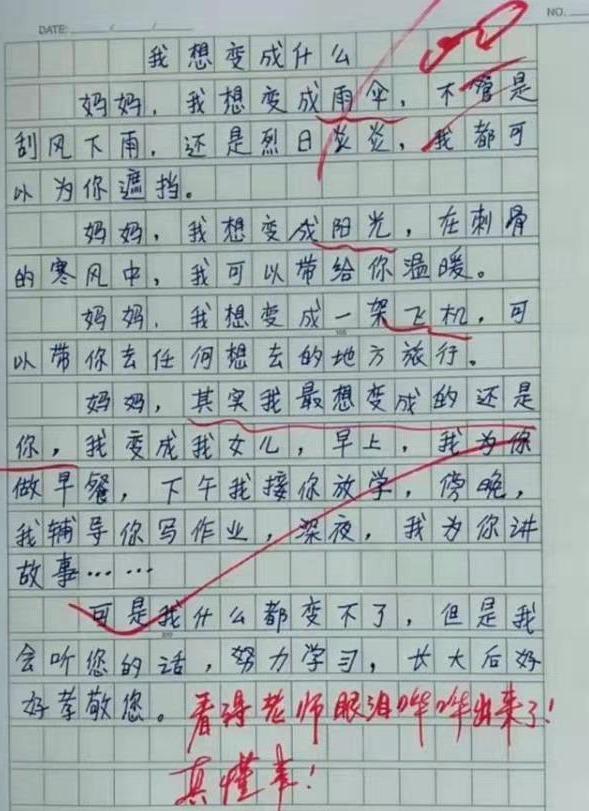 DATE: / /
NO.
我想变成什么
妈妈，我想变成雨伞，不管是
刮风下雨，还是烈日炎炎，我都可
以为你遮挡。
妈妈，我想变成阳光，在刺骨
的寒风中，我可以带给你温暖。
妈妈，我想变成一架飞机，可
以带你去任何想去的地方旅行。
妈妈，其实我最想变成的还是
你，我变成我女儿，早上，我为你
做早餐，下午我接你放学，傍晚，
我辅导你写作业，深夜，我为你讲
故事……
可是我什么都变不了，但是我
会听您的话，努力学习，长大后好
好孝敬您。
看得老师眼泪哗哗出来了！
真懂事！